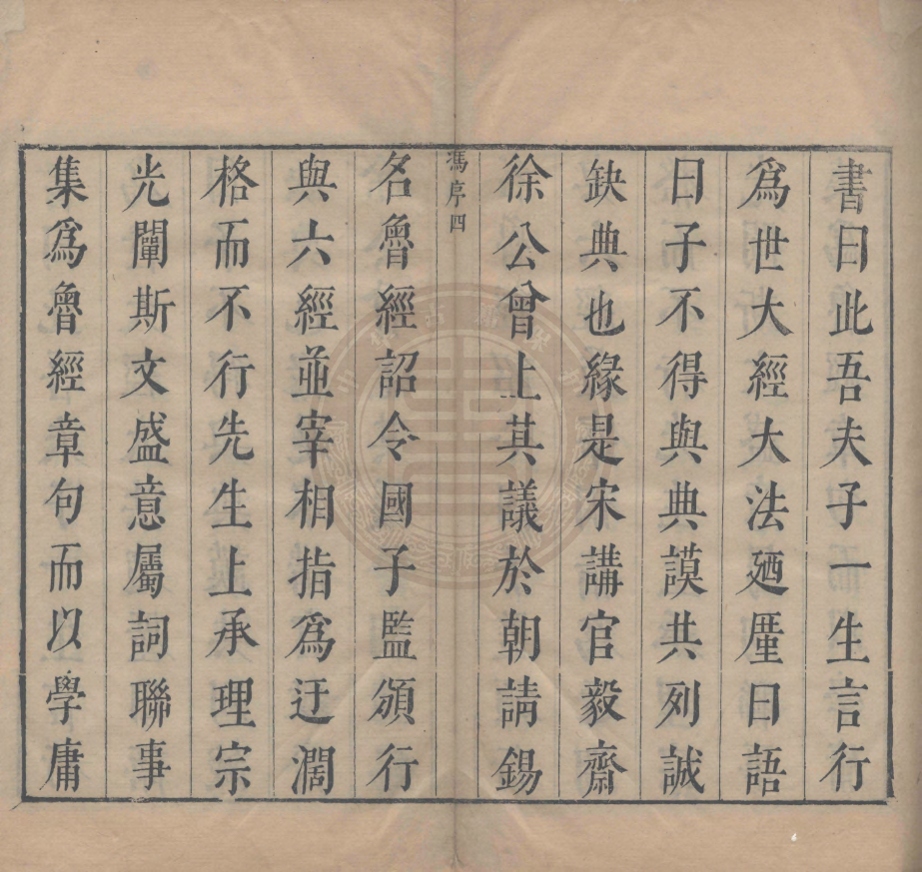 書曰此吾夫子一生言行
爲世大經大法廼厪曰語
曰子不得與典謨共列誠
缺典也緣是宋講官毅齋
徐公曾上其議於朝請錫
馮序四
名魯經詔令國子監頒行
與六經並宰相指爲迂濶
格而不行先生上承理宗
光闡斯文盛意屬詞聯事
集爲魯經章句而以學庸